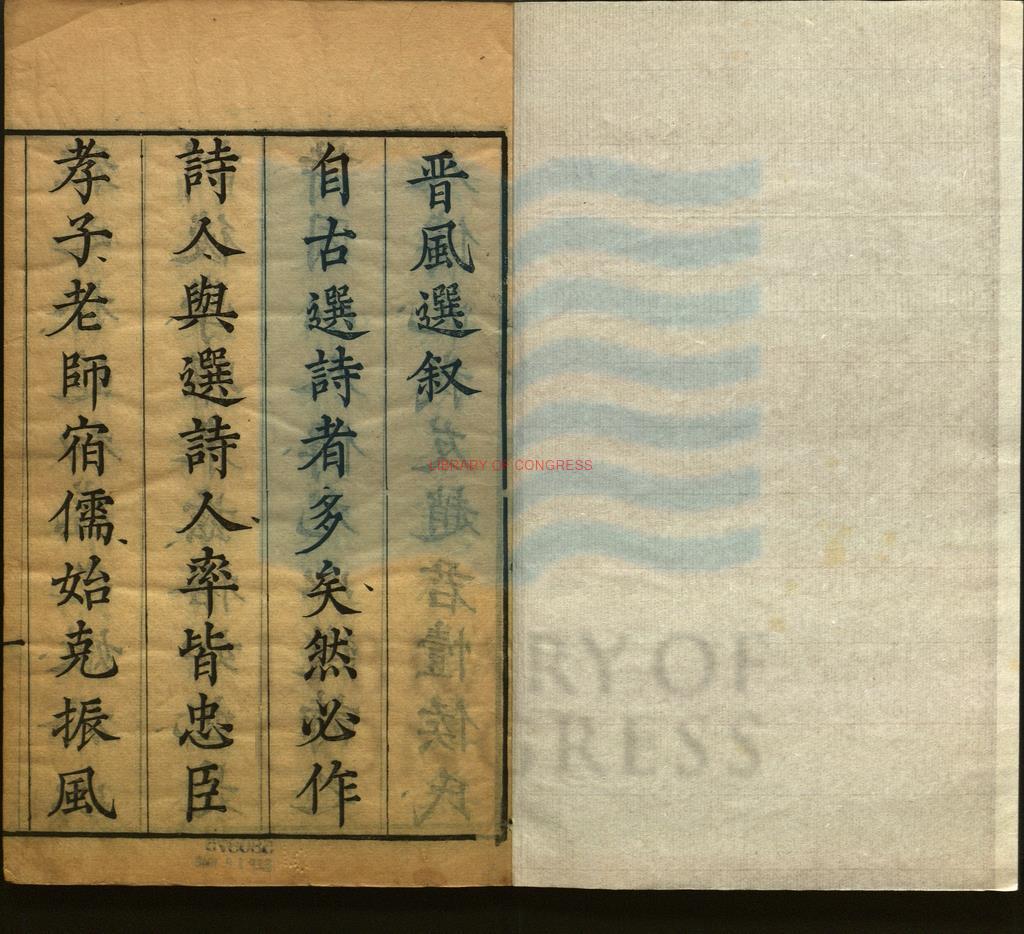 晋風選叙
自古選詩者多矣然必作
詩人與選詩人率皆忠臣
孝子老師宿儒始克振風
LIBRARY OF CONGRESS
RY OF
GRESS